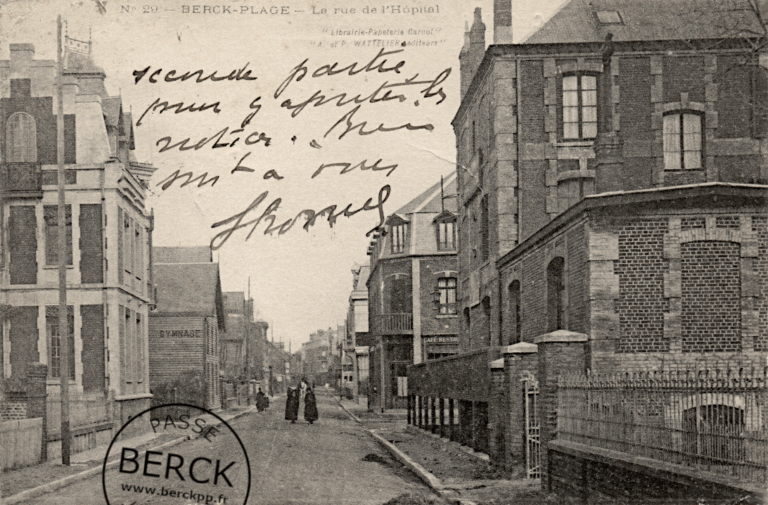 No 29 - BERCK-PLAGE - La rue de l'Hôpital
"Librairie-Papeterie Caroul"
A. et P. WATTELIER éditeurs
seconde partie
pour y ajouter les
notion. Bien
à vous
GYMNASE
PASSÉ
BERCK
www.berckpp.fr